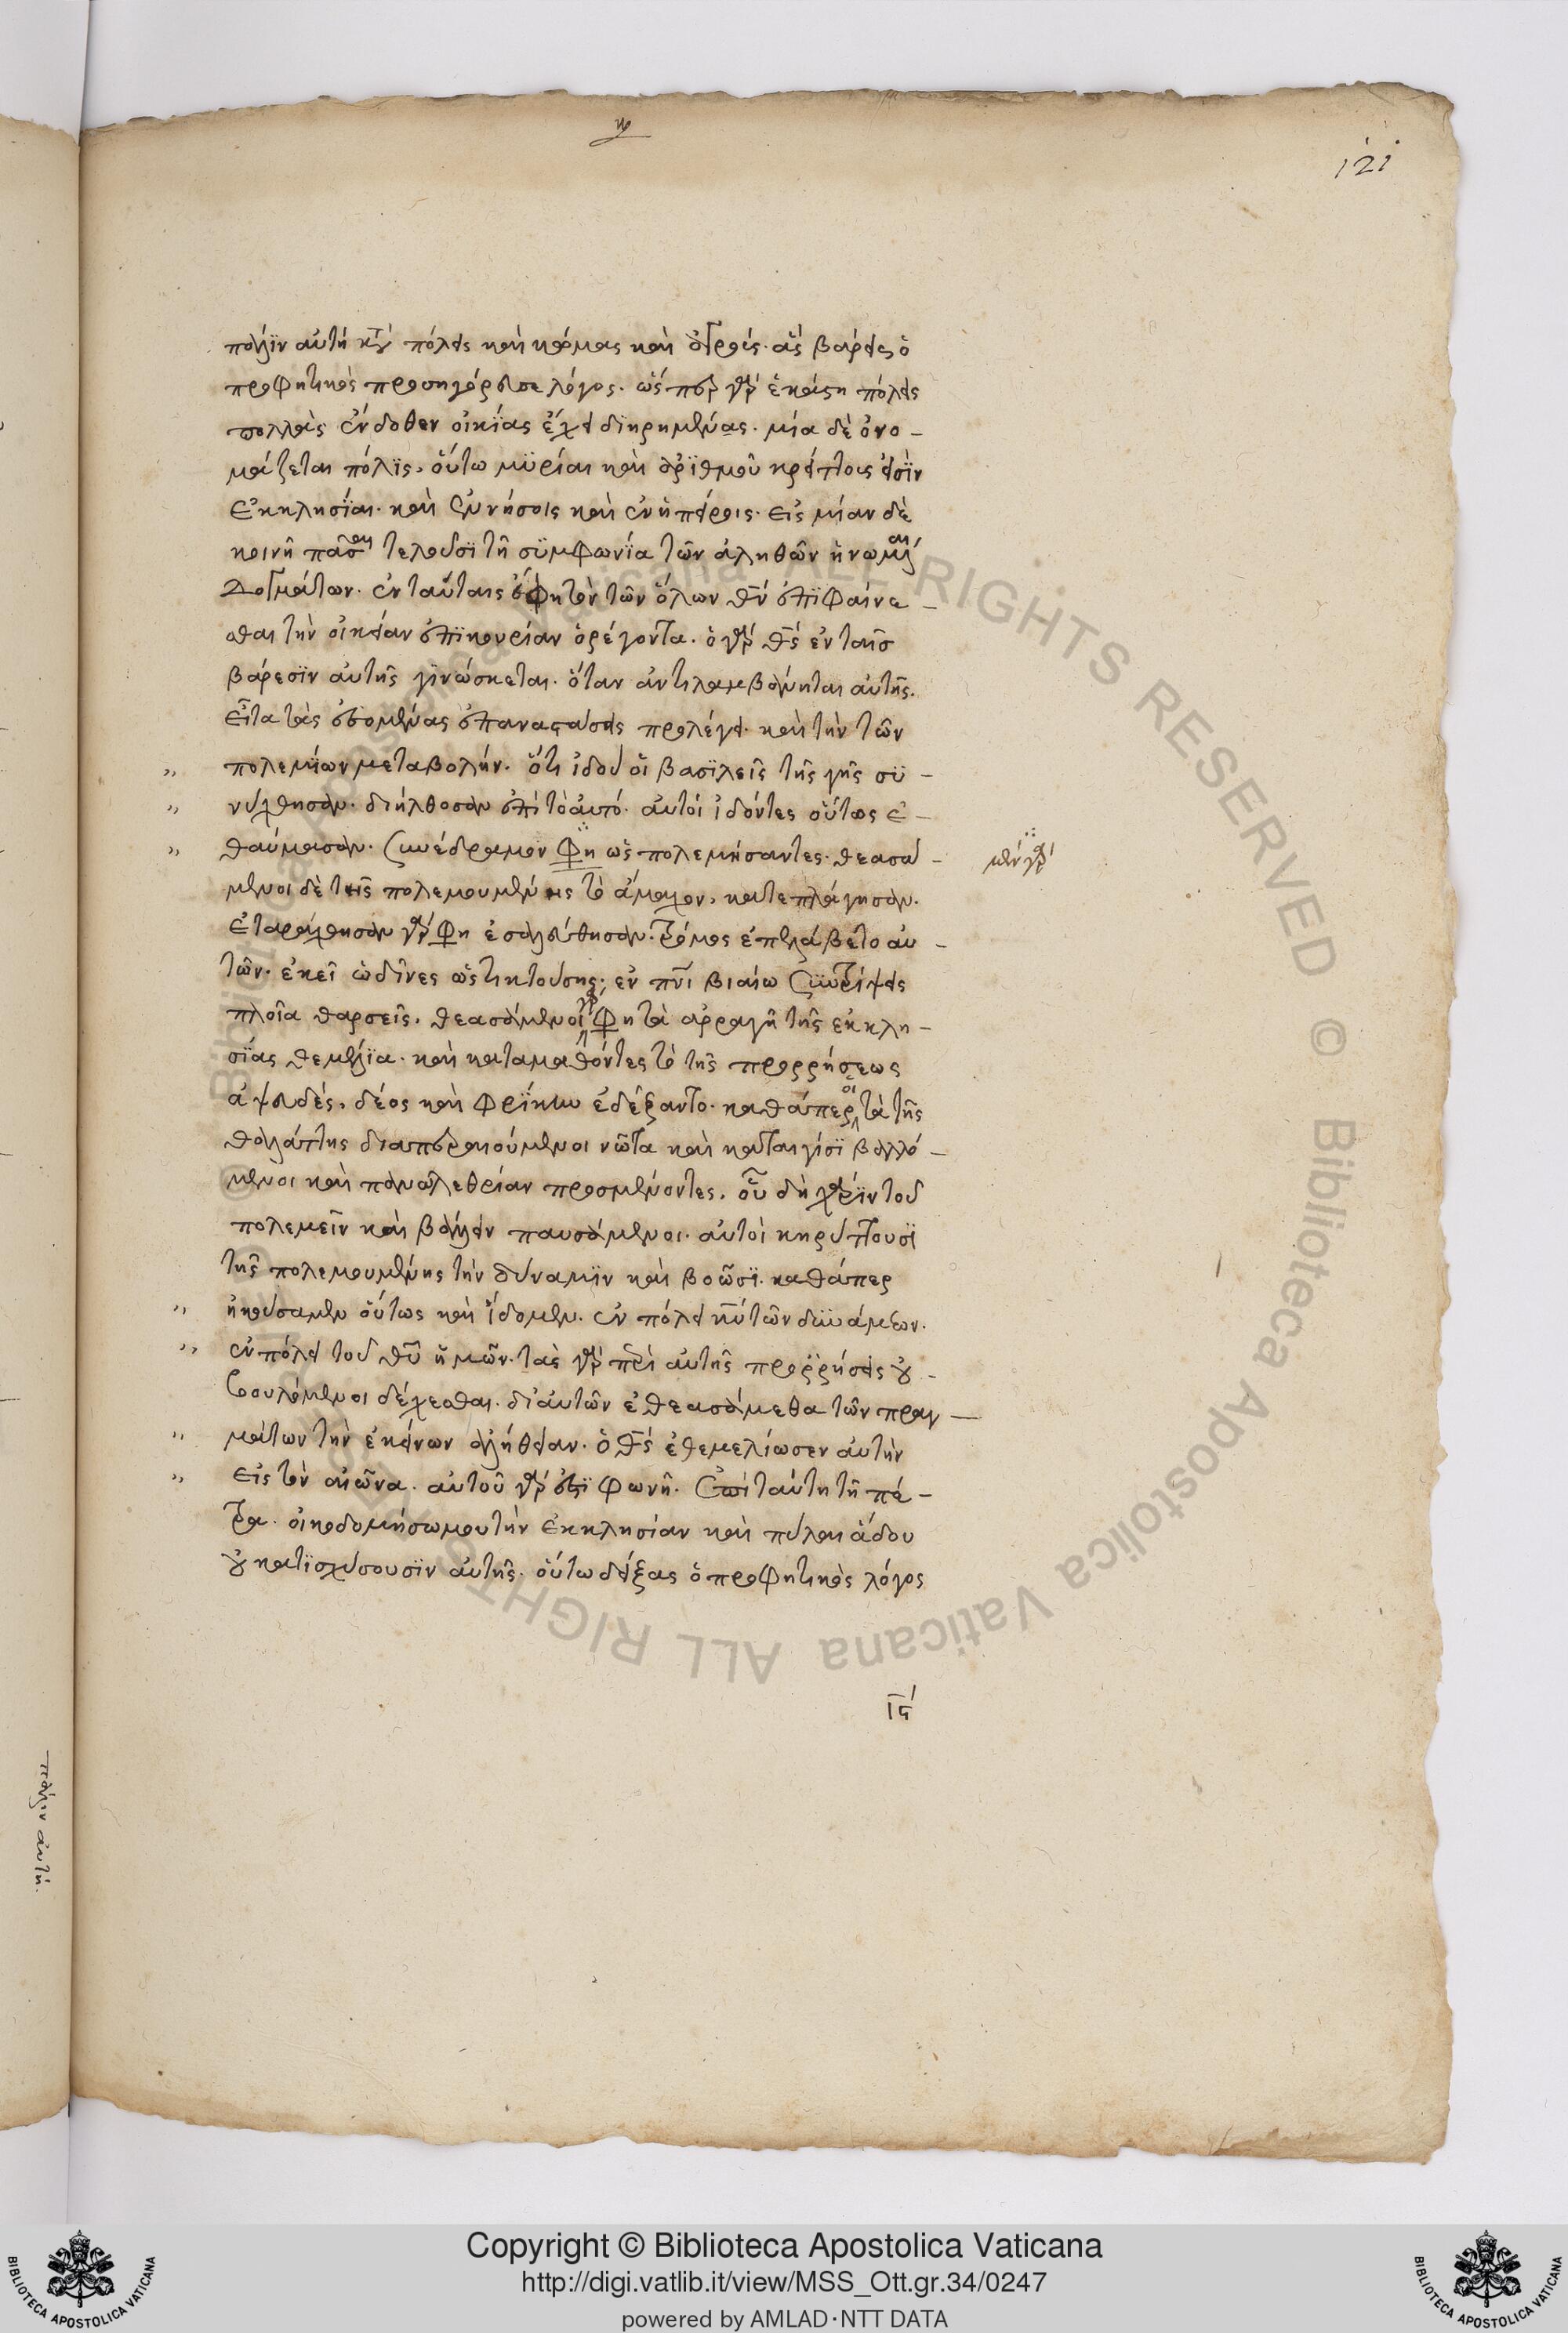 121
πάλιν αὐτὴ κατὰ πόλεις καὶ κώμας καὶ ἀγροὺς. ἃς βάρεις ὁ
προφητικὸς προσηγόρευσε λόγος. ὥσπερ γὰρ ἑκάστη πόλις
πολλὰς ἔνδοθεν οἰκίας ἔχει διηρημένας. μία δὲ ὀνο-
μάζεται πόλϊς, οὕτω μϋρίαι καὶ ἀρϊθμοῦ κρείττους εἰσϊν
ἐκκλησίαι. καὶ ἐν νήσοις καὶ ἐν ἠπείροις. εἰς μίαν δὲ
κοινῇ πᾶσαι τελοῦσϊ τῇ σϋμφωνϊα τῶν ἀληθῶν ἡνωμέναι
δογμάτων. ἐν ταύταις ἔφη τὸν τῶν ὅλων θν ἐπϊφαίνε-
σθαι τὴν οἰκείαν ἐπϊκουρίαν ὀρέγοντα. ὁ γὰρ θς ἐν ταῖς
βάρεσϊν αὐτῆς γϊνώσκεται. ὅταν ἀντιλαμβάνηται αὐτῆς.
εἶτα τὰς ἐσομένας ἐπαναστάσεις προλέγει. καὶ τὴν τῶν
πολεμϊων μεταβολήν. ὅτι ἰδοὺ οἱ βασϊλεῖς τῆς γῆς σϋ-
νήχθησαν. διήλθοσαν ἐπὶ τὸ αὐτό. αὐτοὶ ἰδόντες οὕτως ἐ-
θαύμασαν. συνέδραμον φη ὡς πολεμήσαντες. θεασά-
μὲν γὰρ
μενοι δὲ τῆς πολεμουμένης τὸ ἄμαχον, κατεπλάγησαν.
ἐταράχθησαν γὰρ φη ἐσαλεύθησαν. τρόμος ἐπελάβετο αὐ-
τῶν. ἐκεῖ ὠδῖνες ὡς τικτούσης; ἐν πνι βιαίω συντρίψεις
πλοῖα θαρσεῖς. θεασάμενοι γὰρ φη τὰ ἀρραγῆ τῆς ἐκκλη-
σίας θεμέλϊα. καὶ καταμαθόντες τὸ τῆς προρρήσεως
ἀψευδές, δέος καὶ φρίκην ἐδέξαντο. καθάπερ οἱ τὰ τῆς
θαλάττης διαπεραιούμενοι νῶτα καὶ καταιγίσϊ βαλλό-
μενοι καὶ πανωλεθρίαν προσμένοντες. οὗ δὴ χάρϊν τοῦ
πολεμεῖν καὶ βάλλειν παυσάμενοι. αὐτοὶ κηρύττουσϊ
τῆς πολεμουμένης τὴν δύναμϊν καὶ βοῶσϊ. καθάπερ
ἠκούσαμεν οὕτως καὶ ἴδομεν. ἐν πόλει κυ τῶν δυνάμεων.
ἐν πόλει τοῦ θυ ἡμῶν. τὰς γὰρ περὶ αὐτῆς προρρήσεις οὐ
βουλόμενοι δέχεσθαι. δι' αὐτῶν ἐθεασάμεθα τῶν πραγ-
μάτων τὴν ἐκείνων ἀλήθειαν. ὁ θς ἐθεμελίωσεν αὐτὴν
εἰς τὸν αἰῶνα. αὐτοῦ γὰρ ἐστϊ φωνή. ἐπὶ ταύτη τῇ πέ-
τρα. οἰκοδομήσω μου τὴν ἐκκλησίαν καὶ πύλαι ἅδου
οὐ κατϊσχύσουσϊν αὐτῆς. οὕτω δείξας ὁ προφητικὸς λόγος
ιϛ
πάλιν αὐτὴ.
Copyright © Biblioteca Apostolica Vaticana
http://digi.vatlib.it/view/MSS_Ott.gr.34/0247
powered by AMLAD·NTT DATA
BIBLIOTECA APOSTOLICA VATICANA
BIBLIOTECA APOSTOLICA VATICANA
© Biblioteca Apostolica Vaticana ALL RIGHTS RESERVED © Biblioteca Apostolica Vaticana ALL RIGHTS RESERVED